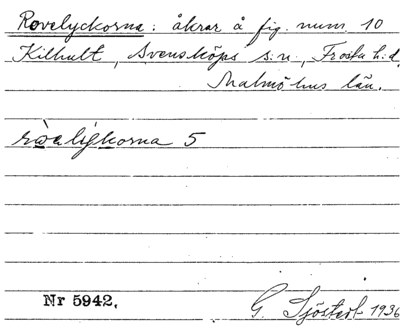 Rovelyckorna: åkrar å fig. num. 10
Kilhult, Svensköps s:n, Frosta h:d,
Malmöhus län.
5
Nr 5942.
G. Sjöstedt 1936